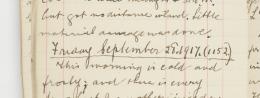 but got no distance inland. Little
material damage was done.
Friday September 28. 1917. (1152)
This morning is cold and
frosty, and there is every